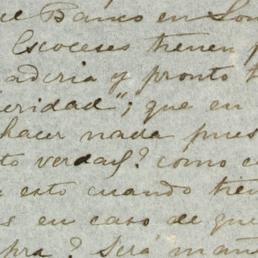 Banco en Lon
Escoceses tienen p
aderia y pronto t
eridad"; que en
hacer nada pues
to verdad? como e
esto cuando tien
s en caso de que
pra? Será mañ